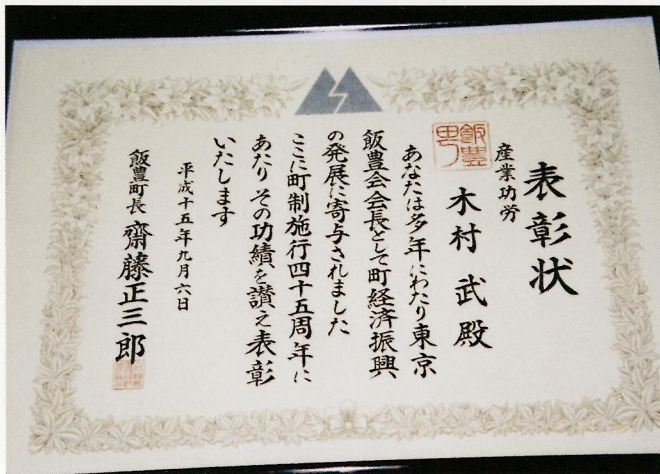 表彰状
産業功労
木村 武 殿
あなたは多年にわたり東京
飯豊会会長として町経済振興
の発展に寄与されました
ここに町制施行四十五周年に
あたり その功績を讃え表彰
いたします
平成十五年九月六日
飯豊町長 齋藤正三郎